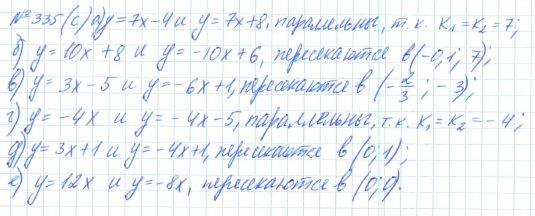 №335(с) а) y = 7x-4 и y = 7x+8, параллельны, т.к. K₁ = K₂ = 7;
б) y = 10x + 8 и y = -10x + 6, пересекаютсе в (-0,1; 7);
в) y = 3x - 5 и y = -6x + 1, пересекаютсе в (-2/3; -3);
г) y = -4x и y = -4x - 5, параллельны, т.к. K₁ = K₂ = -4;
д) y = 3x + 1 и y = -4x + 1, пересекаютсе в (0; 1);
е) y = 12x и y = -8x, пересекаютсе в (0; 0).